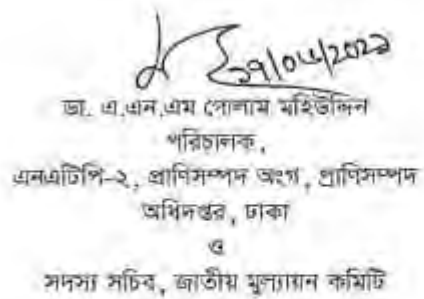 ২৭/০৬/২০২১
ডা. এ.এন.এম গোলাম মহিউদ্দিন
পরিচালক,
এনএটিপি-২, প্রাণিসম্পদ অংগ, প্রাণিসম্পদ
অধিদপ্তর, ঢাকা
ও
সদস্য সচিব, জাতীয় মুল্যায়ন কমিটি